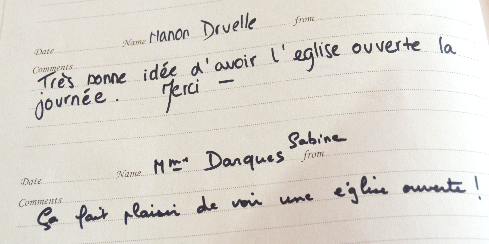 Date Name Manon Druelle from
Comments
Très bonne idée d'avoir l'eglise ouverte la
journée. Merci –
Date Name Mme Darques Sabine from
Comments
Ça fait plaisir de voir une église ouverte !